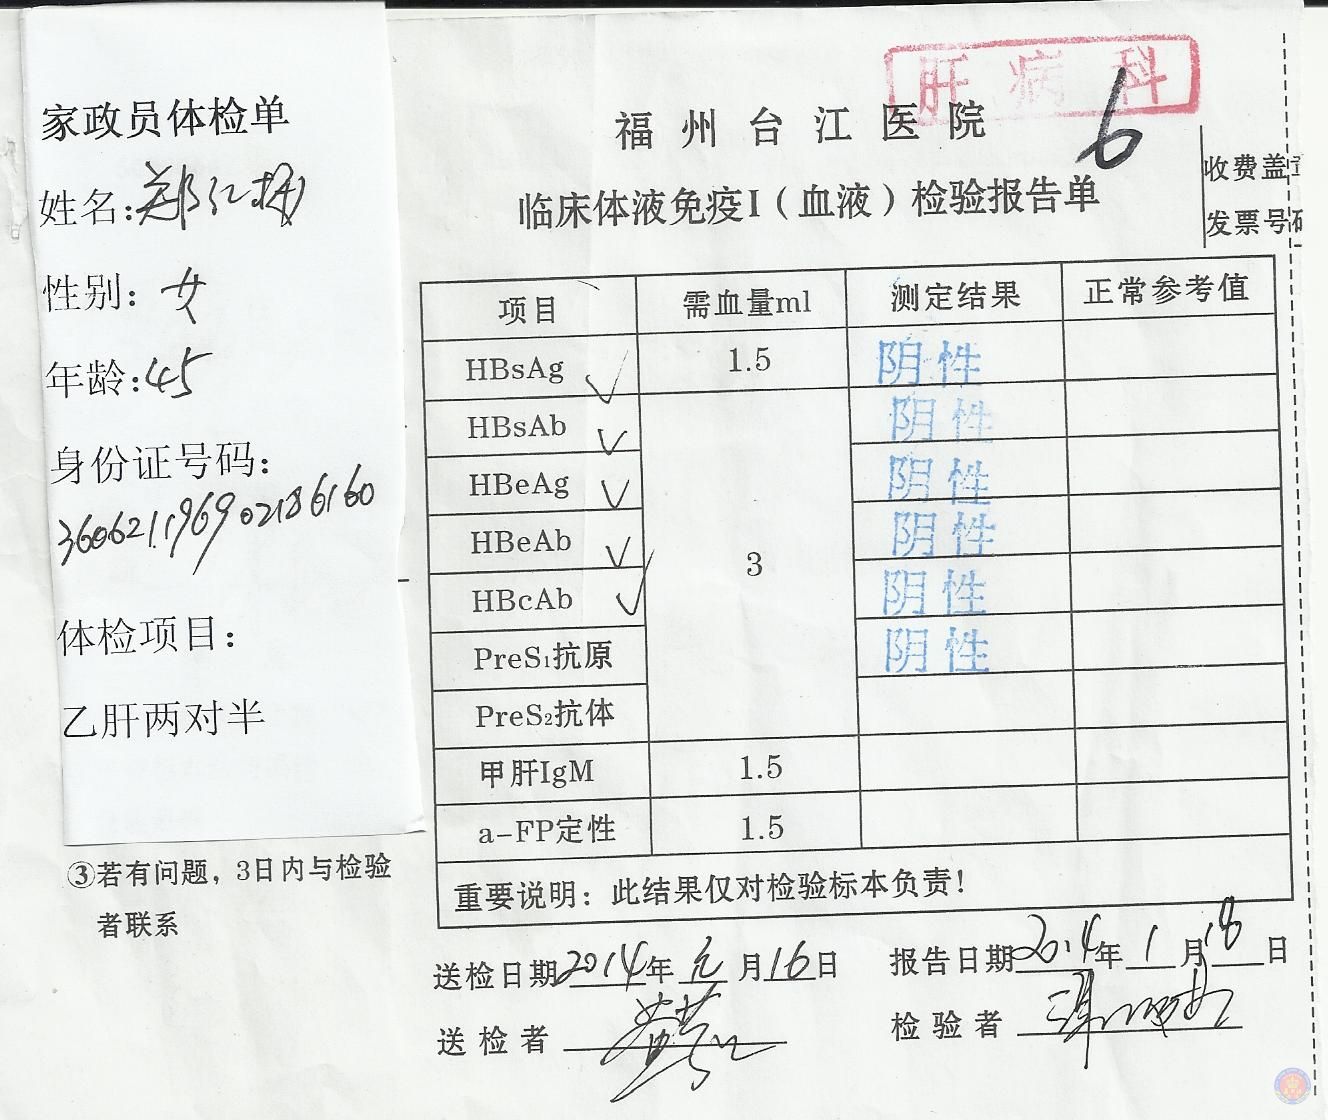 家政员体检单
姓名:郑
性别:女
年龄:45
身份证号码:
体检项目:
乙肝两对半
③若有问题，3日内与检验
者联系
肝病科
福州台江医院
6
临床体液免疫I（血液）检验报告单
收费盖
发票号
项目 需血量ml 测定结果 正常参考值
HBsAg 1.5 阴性
HBsAb 阴性
HBeAg 阴性
HBeAb 3 阴性
HBcAb 阴性
PreS₁抗原 阴性
PreS₂抗体
甲肝IgM 1.5
a-FP定性 1.5
重要说明：此结果仅对检验标本负责!
送检日期2014年元月16日 报告日期2014年1月18日
送检者 检验者